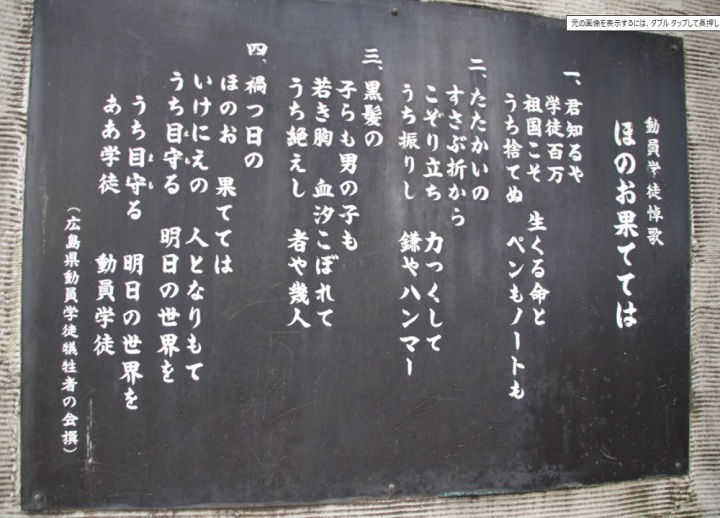 元の画像を表示するには、ダブル タップして長押し
動員学徒悼歌
ほのお果てては
一、君知るや
学徒百万
祖国こそ 生くる命と
うち捨てぬ ペンもノートも
二、たたかいの
すさぶ折から
こぞり立ち 力つくして
うち振りし 鎌やハンマー
三、黒髪の
子らも男の子も
若き胸 血汐こぼれて
うち絶えし 者や幾人
四、禍つ日の
ほのお 果てては
いけにえの 人となりもて
うち目守る 明日の世界を
うち目守る 明日の世界を
ああ学徒 動員学徒
(広島県動員学徒犠牲者の会撰)